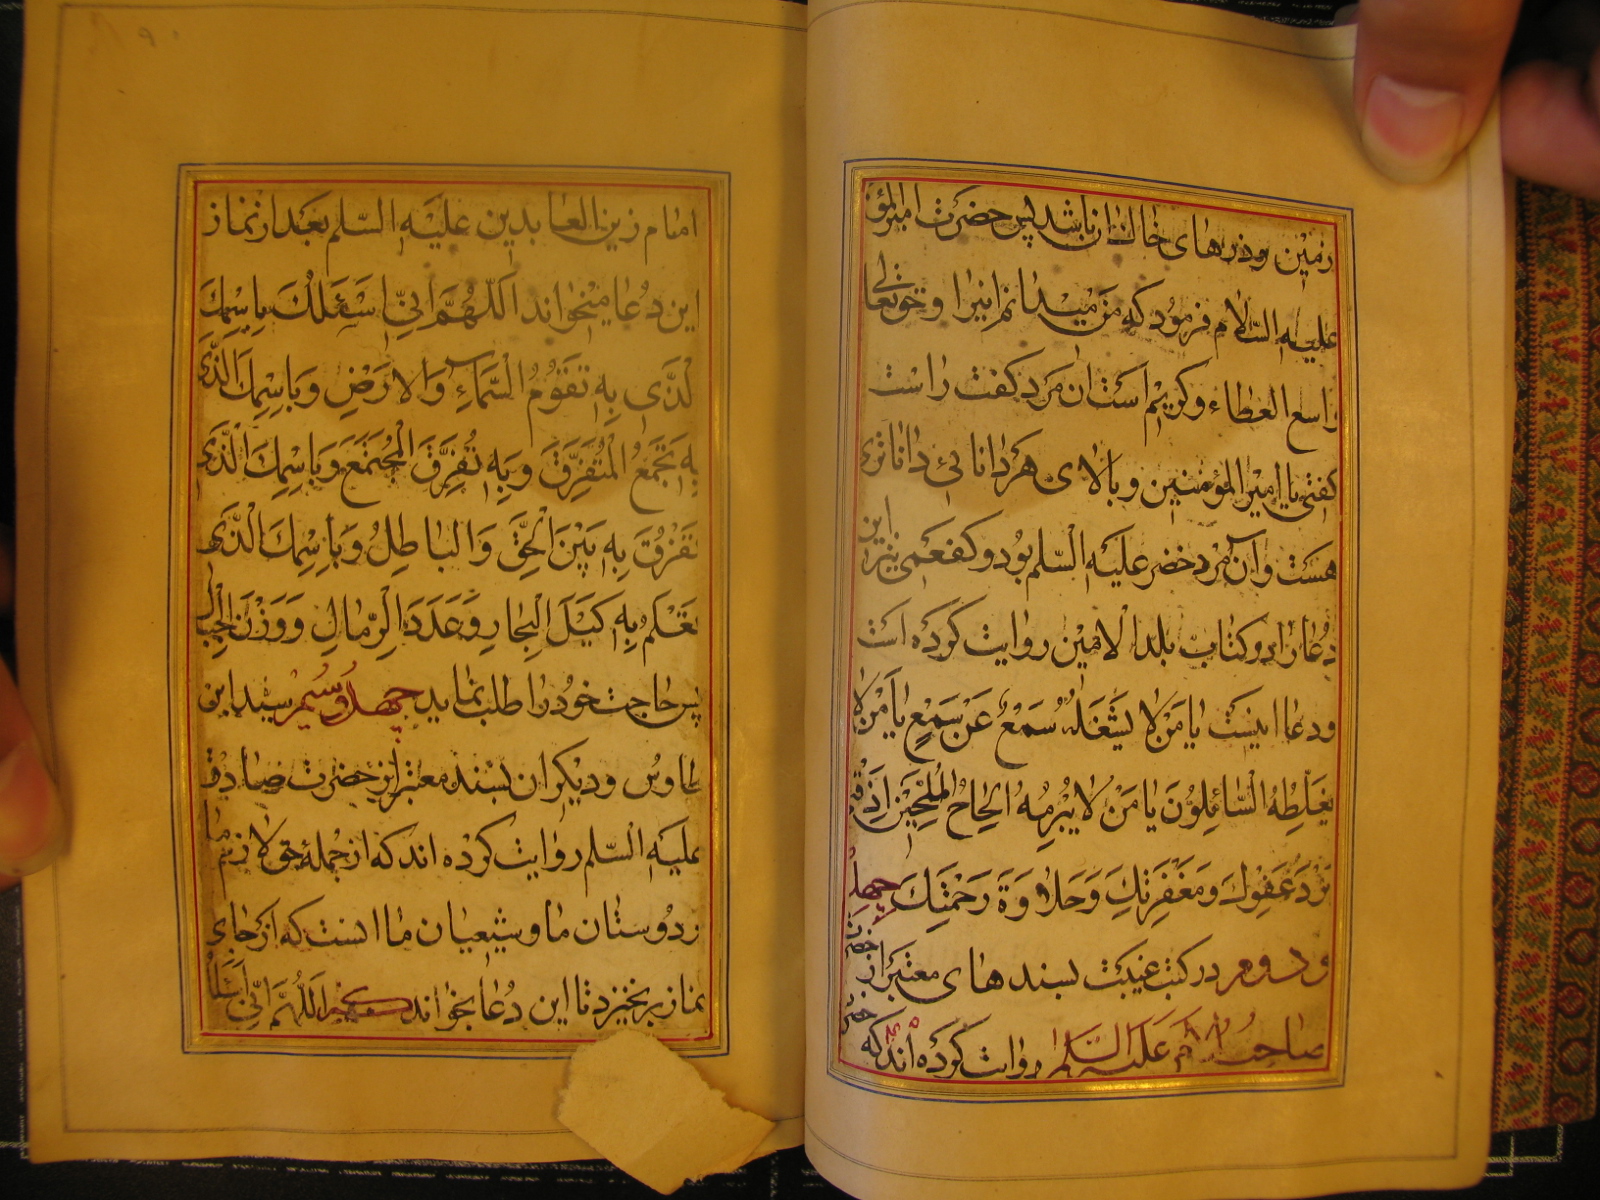 زمین و ذرهای خاك ان باشد پس حضرت امیر المؤمنین
علیه السّلام فرمود که من میدانم اینرا و حق تعالی
واسع العطاء و کریم است ان مرد کفت راست
کفتی یا امیر المؤمنین و بالای هر دانائی داناتری
هست و آن مرد خضر علیه السّلم بود و کفعمی نیز این
دعا را در کتاب بلد الامین روایت کرده است
و دعا اینست یا مَنْ لا یَشْغَلُهُ سَمْعٌ عَنْ سَمْعٍ یا مَنْ لا
یغَلِّطُهُ السّائِلُونَ یا مَنْ لا یُبْرِمُهُ اِلْحاحُ المُلِحّینَ اَذِقْنی
بَرْدَ عَفْوِكَ وَ مَغْفِرَتِكَ وَ حَلاوَةَ رَحْمَتِكَ چهل
و دوم در کتب غیبت بسندهای معتبر از حضرت
صاحب الامر علیه السّلم روایت کرده اند که حضرت
امام زین العابدین علیه السّلم بعد از نماز
این دعا میخواند اَللّهُمَّ اِنّی اَسْئَلُكَ بِاِسْمِكَ
الَّذی بِهِ تَقُومُ السَّماءِ وَالاَرْضِ وَ بِاسْمِكَ الَّذی
بِهِ تَجْمَعُ الْمُتَفَرِّقَ وَ بِهِ تُفَرِّقَ الْمُجْتَمَعَ وَ بِاسْمِكَ الَّذی
تَفْرُقَ بِهِ بَیْنَ الْحَقِّ وَ الباطِلُ وَ بِاِسْمِكَ الَّذی
تَعْلَمُ بِهِ کَیْلَ الْبِحارِ وَ عَدَدَ الرِّمالِ وَ وَزْنَ الْجِبال
پس حاجت خود را طلب نماید چهل و سیم سید ابن
طاوس و دیکران بسند معتبر از حضرت صادق
علیه السّلم روایت کرده اند که از جمله حق لازم ما
بر دوستان ما و شیعیان ما انست که از جای
نماز برنخیزد تا این دعا بخواند اَللّهُمَّ اِنّی اَسْئَلُكَ